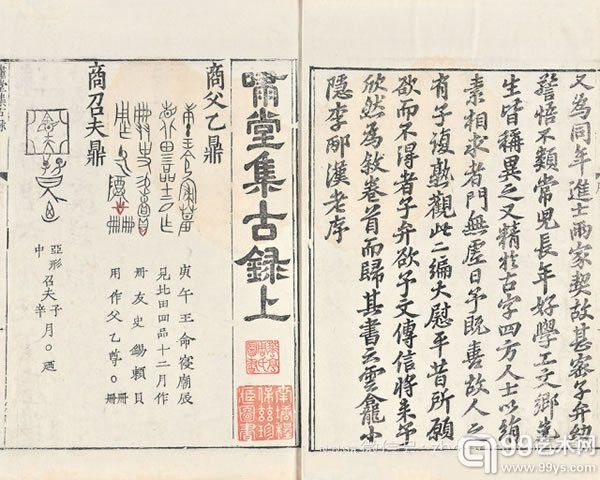 又為同年進士兩家契故甚密子弁幼
警悟不類常兒長年好學工文鄉先
生皆稱異之又精於古字四方人士以絹
素相求者門無虛日予既善故人之
有子復熟觀此二編大慰平昔所願
欲而不得者子弁欲予文傳信將來予
欣然為敘卷首而歸其書云雲龕小
隱李邴漢老序
嘯堂集古錄上
商父乙鼎
庚午王命寑廟辰
見北田四品十二月作
冊友史錫賴貝
用作父乙尊〇冊冊
商召夫鼎
亞形召夫子
中辛月〇
99艺术网
www.99ys.com